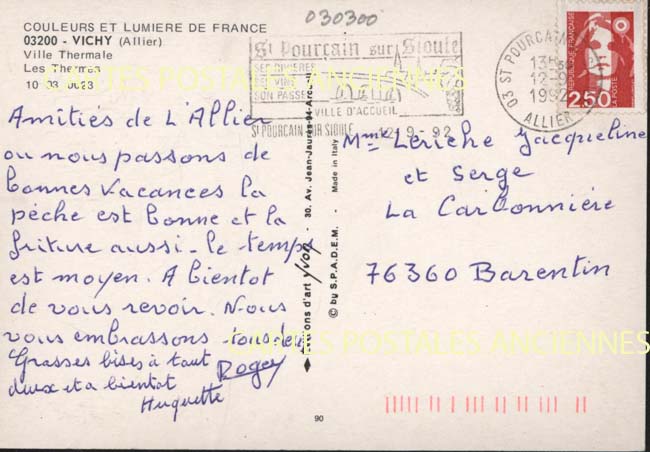 030300
COULEURS ET LUMIERE DE FRANCE
03200 - VICHY (Allier)
Ville Thermale
Les Thermes
10 03 0023
St Pourçain sur Sioule
SES RIVIERES
SES VINS
SON PASSE
VILLE D'ACCUEIL
ST POURCAIN SUR SIOULE 12 9 - 92
03 ST POURCAIN
13H
12-9
199
ALLIER
REPUBLIQUE FRANÇAISE
LA POSTE
2,50
CARTES POSTALES ANCIENNES
Amitiés de L'Allier
ou nous passons de
bonnes vacances la
pèche est bonne et la
friture aussi - le temps
est moyen. A bientot
de vous revoir. Nous
vous embrassons tous deux
Grasses bises à tout
deux et a bientot
Roger
Huguette
Editions d'art Yvon - 30, Av. Jean-Jaurès-94-Arcueil
© by S.P.A.D.E.M. - Made in Italy
Mme Leriche Jacqueline
et Serge
La Carbonnière
76360 Barentin
CARTES POSTALES ANCIENNES
90